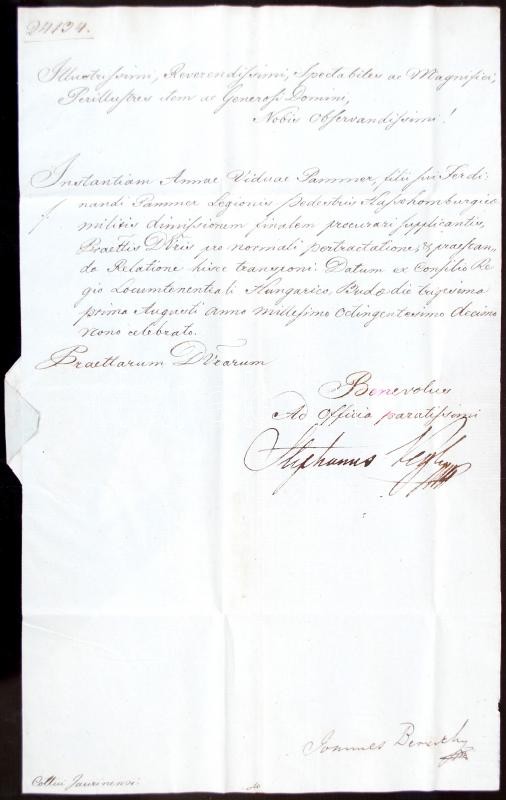 24134.
Illustrissimi, Reverendissimi, Spectabiles ac Magnifici,
Perillustres item ac Generosi Domini,
Nobis Observandissimi!
Instantiam Annae Viduae Pammer, filii sui Ferdi
nandi Pammer Legionis pedestris Hassohomburgico
militis dimissionem finalem procurari supplicantis,
Praettis DVris pro normali pertractatione, & praestan,
da Relatione hisce transponi. Datum ex Consilio Re
gio Locumtenentiali Hungarico, Budae die trigesima
prima Augusti anno millesimo octingentesimo decimo
nono celebrato.
Praettarum DVrarum
Benevolus
Ad Officia paratissimi
Stephanus
Joannes
Cottui Jaurinensi.